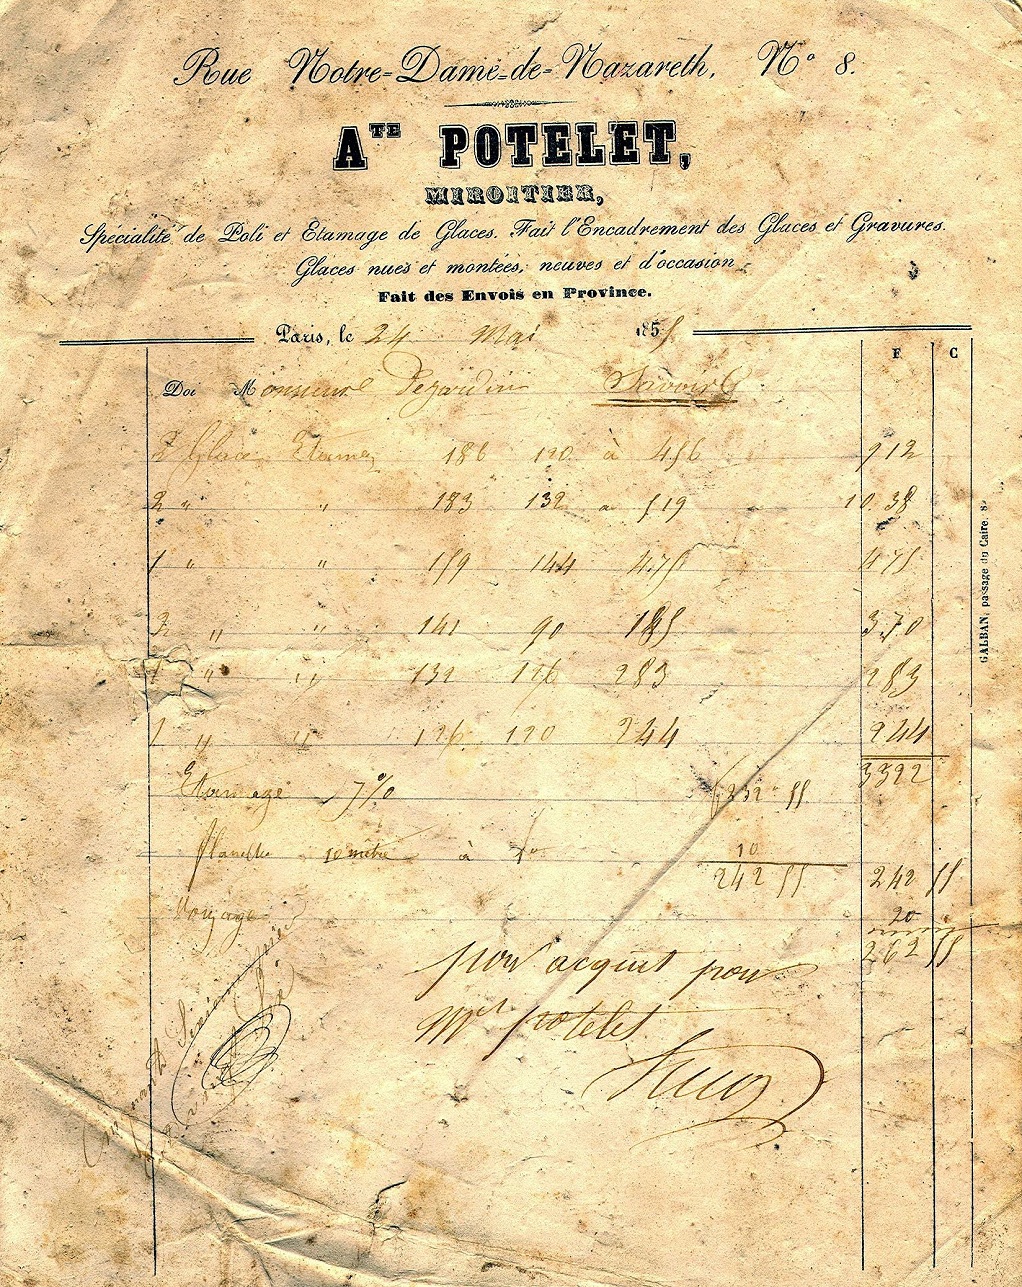 Rue Notre-Dame-de-Nazareth, Nº 8.
Aᵀᴱ POTELET,
MIROITIER,
Spécialité de Poli et Etamage de Glaces. Fait l'Encadrement des Glaces et Gravures.
Glaces nues et montées, neuves et d'occasion
Fait des Envois en Province.
Paris, le 24 Mai 1855
F C
Doi Monsieur Dejardin Savoir
2 Glaces Etamés 186 120 à 456 912
2 " " 183 132 a 519 10.38
1 " " 159 144 475 475
2 " " 141 90 185 3.70
1 " " 132 126 283 283
1 " " 126 120 244 244
3322
Etamage 7% 232 55
Planche 10 metre à 1ᶠ 10
242 55 242 55
Voyage 20
262 55
pour acquit pour
Mᵉʳ potelet
GALBAN, passage du Caire. 8